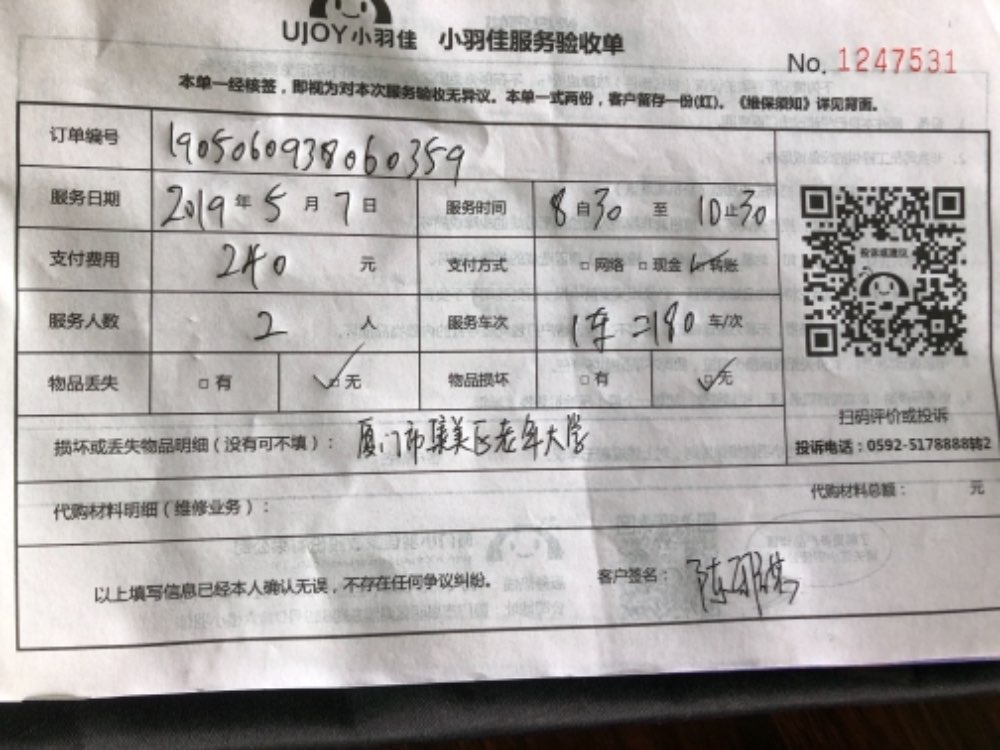 UJOY小羽佳 小羽佳服务验收单
No. 1247531
本单一经核签，即视为对本次服务验收无异议。本单一式两份，客户留存一份(红)。《维保须知》详见背面。
订单编号 190506093806 0359
服务日期 2019年5月7日 服务时间 8自30至10止30
支付费用 240 元 支付方式 □网络 □现金 ☑转账
服务人数 2 人 服务车次 1车=180 车/次
物品丢失 □有 ☑无 物品损坏 □有 ☑无
投诉或建议
扫码评价或投诉
投诉电话：0592-5178888转2
损坏或丢失物品明细（没有可不填）： 厦门市集美区老年大学
代购材料明细（维修业务）： 代购材料总额： 元
以上填写信息已经本人确认无误，不存在任何争议纠纷。 客户签名：